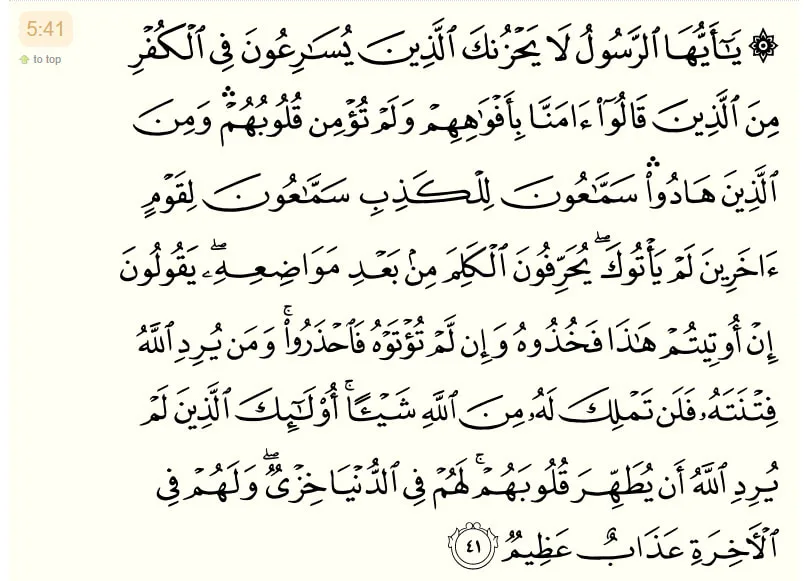 5:41
to top
۞ يَـٰٓأَيُّهَا ٱلرَّسُولُ لَا يَحْزُنكَ ٱلَّذِينَ يُسَـٰرِعُونَ فِى ٱلْكُفْرِ
مِنَ ٱلَّذِينَ قَالُوٓا۟ ءَامَنَّا بِأَفْوَٰهِهِمْ وَلَمْ تُؤْمِن قُلُوبُهُمْ ۛ وَمِنَ
ٱلَّذِينَ هَادُوا۟ ۛ سَمَّـٰعُونَ لِلْكَذِبِ سَمَّـٰعُونَ لِقَوْمٍ
ءَاخَرِينَ لَمْ يَأْتُوكَ ۖ يُحَرِّفُونَ ٱلْكَلِمَ مِنۢ بَعْدِ مَوَاضِعِهِۦ ۖ يَقُولُونَ
إِنْ أُوتِيتُمْ هَـٰذَا فَخُذُوهُ وَإِن لَّمْ تُؤْتَوْهُ فَٱحْذَرُوا۟ ۚ وَمَن يُرِدِ ٱللَّهُ
فِتْنَتَهُۥ فَلَن تَمْلِكَ لَهُۥ مِنَ ٱللَّهِ شَيْـًٔا ۚ أُو۟لَـٰٓئِكَ ٱلَّذِينَ لَمْ
يُرِدِ ٱللَّهُ أَن يُطَهِّرَ قُلُوبَهُمْ ۚ لَهُمْ فِى ٱلدُّنْيَا خِزْىٌ ۖ وَلَهُمْ فِى
ٱلْـَٔاخِرَةِ عَذَابٌ عَظِيمٌ ٤١